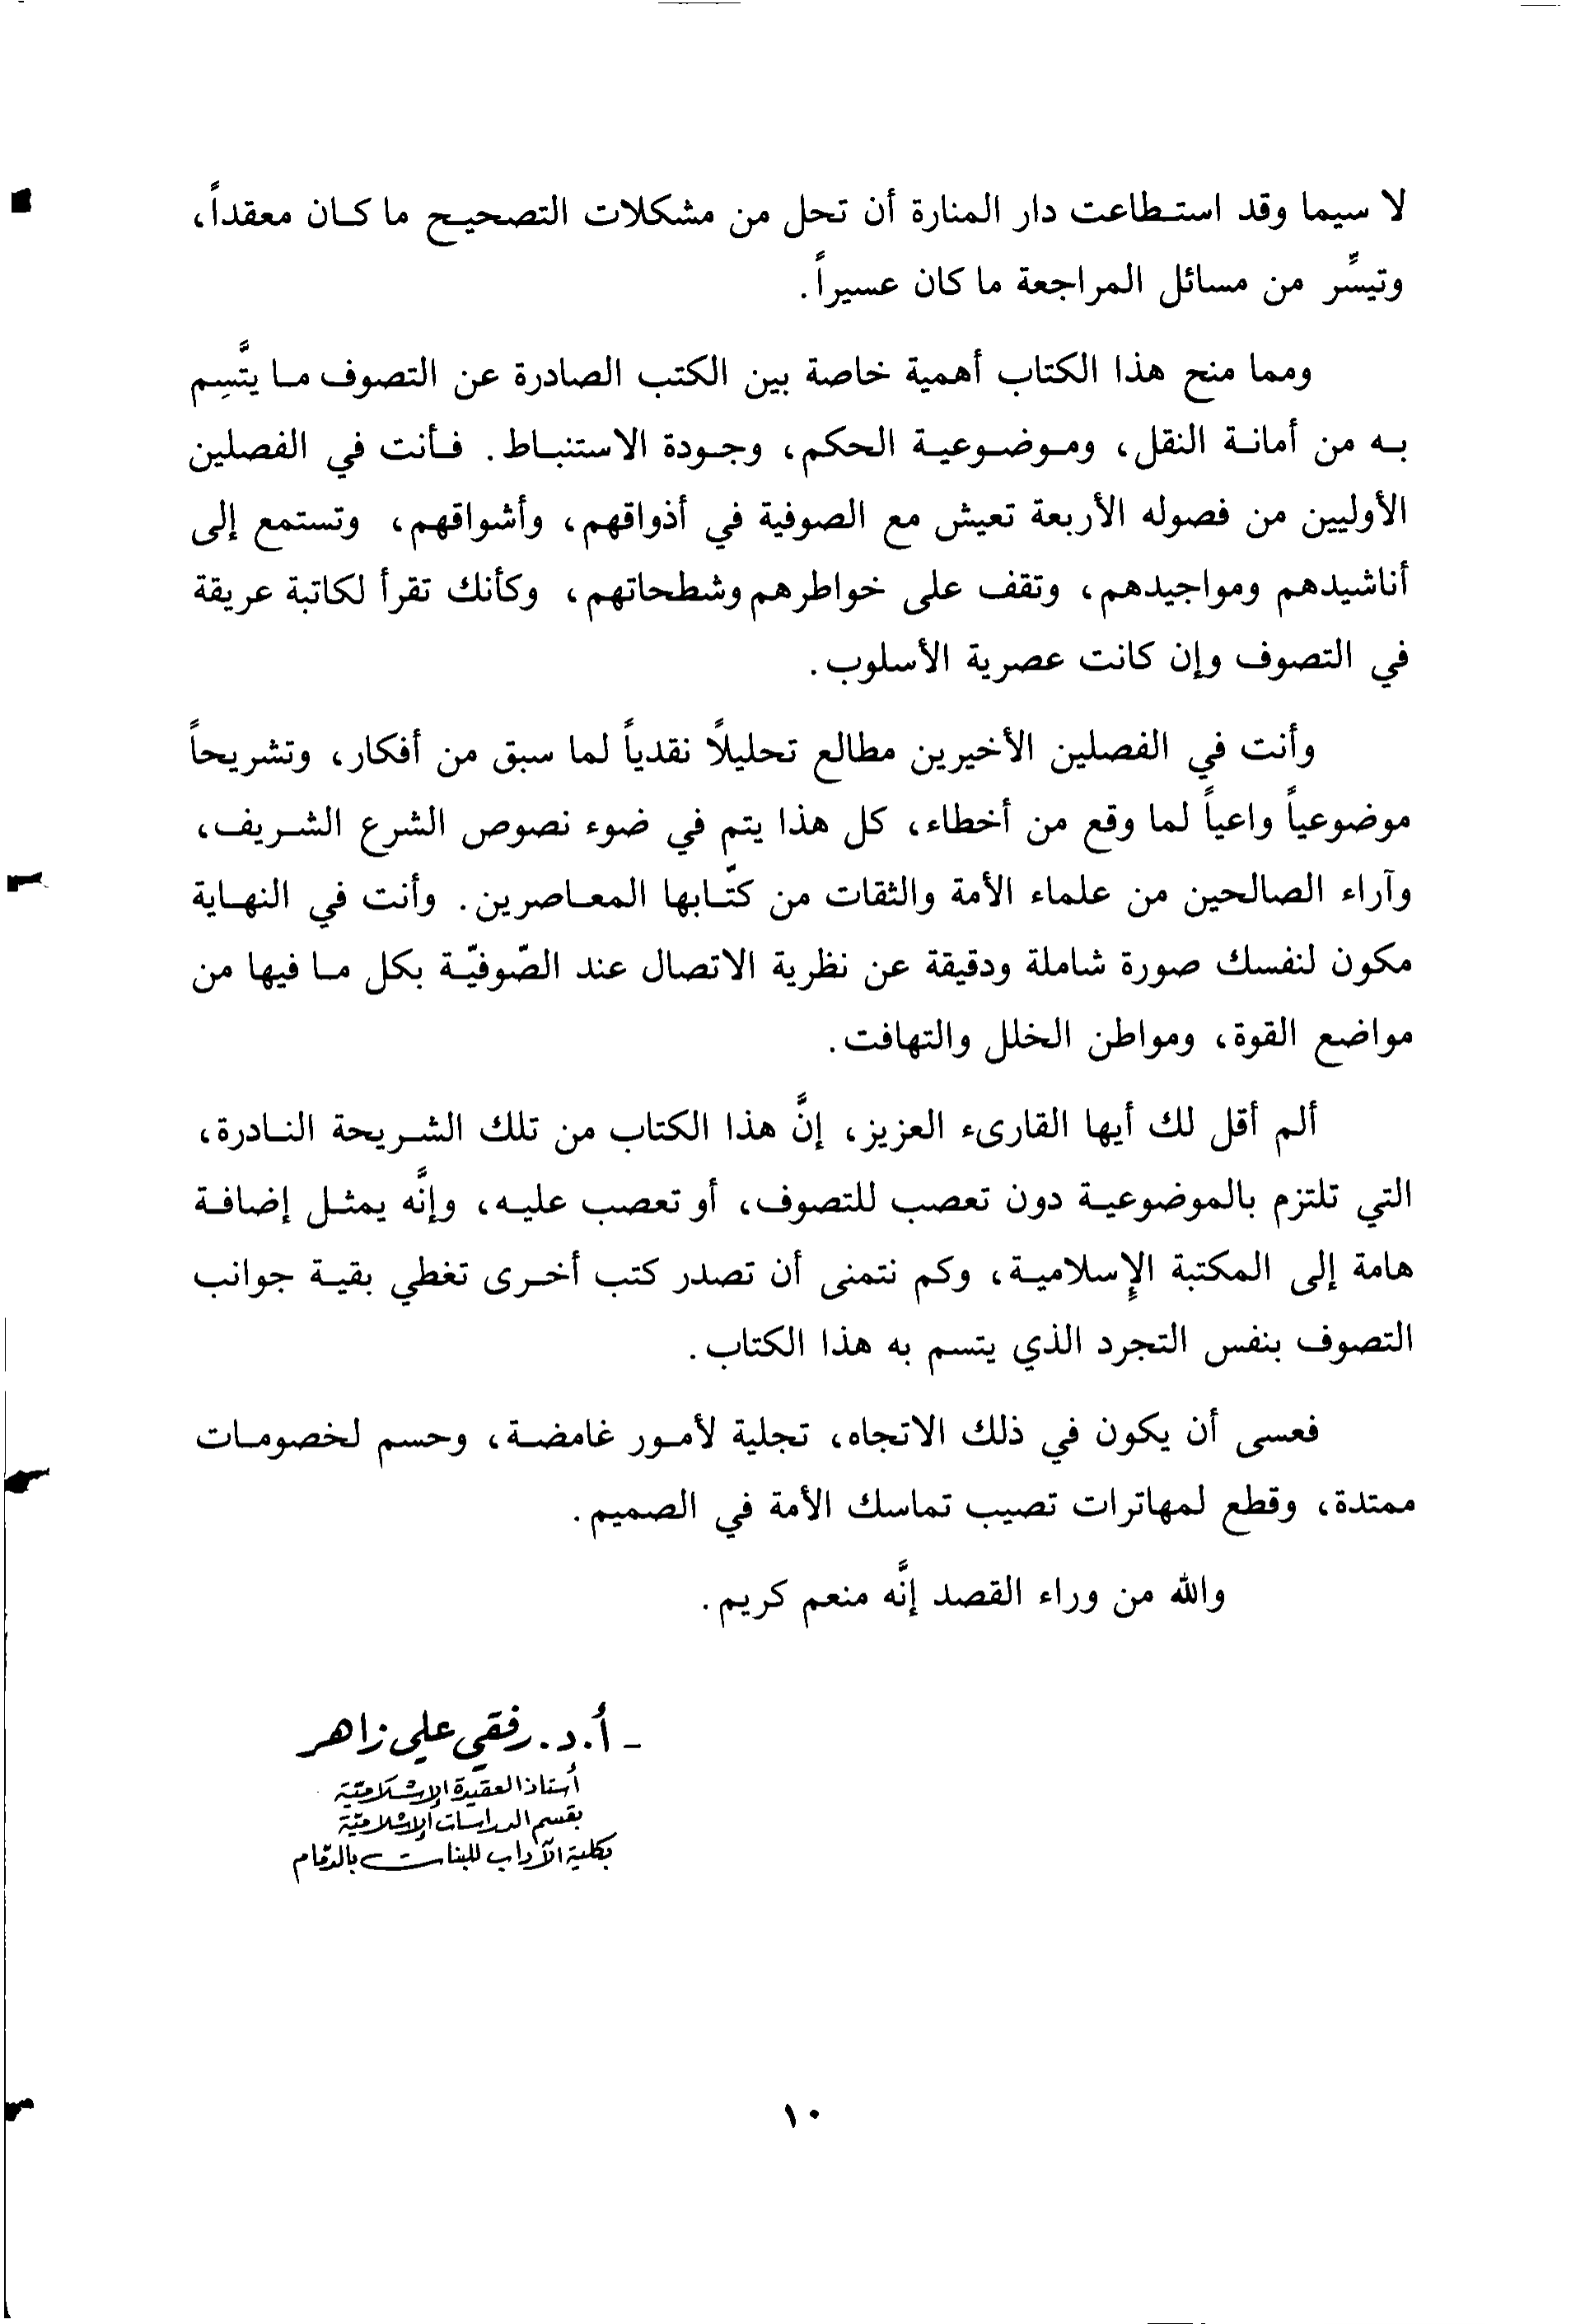 لا سيما وقد استطاعت دار المنارة أن تحل من مشكلات التصحيح ما كان معقداً،
وتيسِّر من مسائل المراجعة ما كان عسيراً.
ومما منح هذا الكتاب أهمية خاصة بين الكتب الصادرة عن التصوف ما يتَّسِم
به من أمانة النقل، وموضوعية الحكم، وجودة الاستنباط. فأنت في الفصلين
الأوليين من فصوله الأربعة تعيش مع الصوفية في أذواقهم، وأشواقهم، وتستمع إلى
أناشيدهم ومواجيدهم، وتقف على خواطرهم وشطحاتهم، وكأنك تقرأ لكاتبة عريقة
في التصوف وإن كانت عصرية الأسلوب.
وأنت في الفصلين الأخيرين مطالع تحليلاً نقدياً لما سبق من أفكار، وتشريحاً
موضوعياً واعياً لما وقع من أخطاء، كل هذا يتم في ضوء نصوص الشرع الشريف،
وآراء الصالحين من علماء الأمة والثقات من كتّابها المعاصرين. وأنت في النهاية
مكون لنفسك صورة شاملة ودقيقة عن نظرية الاتصال عند الصّوفيّة بكل ما فيها من
مواضع القوة، ومواطن الخلل والتهافت.
ألم أقل لك أيها القارىء العزيز، إنَّ هذا الكتاب من تلك الشريحة النادرة،
التي تلتزم بالموضوعية دون تعصب للتصوف، أو تعصب عليه، وإنَّه يمثل إضافة
هامة إلى المكتبة الإسلامية، وكم نتمنى أن تصدر كتب أخرى تغطي بقية جوانب
التصوف بنفس التجرد الذي يتسم به هذا الكتاب.
فعسى أن يكون في ذلك الاتجاه، تجلية لأمور غامضة، وحسم لخصومات
ممتدة، وقطع لمهاترات تصيب تماسك الأمة في الصميم.
والله من وراء القصد إنَّه منعم كريم.
- أ.د. رفقي علي زاهر
أستاذ العقيدة الإسلاميّة
بقسم الدراسات الإسلاميّة
بكلية الآداب للبنات بالدمّام
١٠